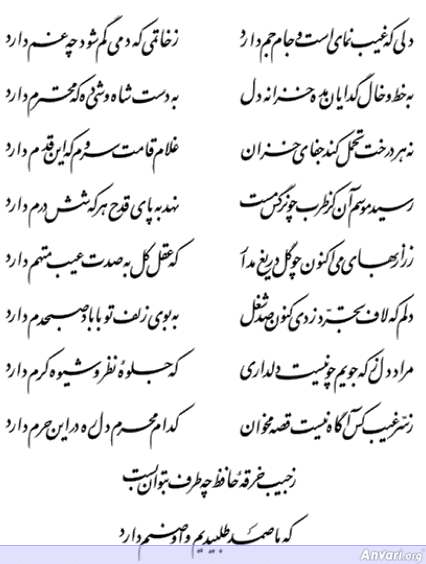 دلی که غیب نمای است و جام جم دارد ز خاتمی که دمی گم شود چه غم دارد
به خط و خال گدایان مده خزانه دل به دست شاه وشی ده که محترم دارد
نه هر درخت تحمل کند جفای خزان غلام قامت سروم که این قدم دارد
رسید موسم آن کز طرب چو نرگس مست نهد به پای قدح هر که شش درم دارد
زر از بهای می اکنون چو گل دریغ مدار که عقل کل به صدت عیب متهم دارد
دلم که لاف تجرد زدی کنون صد شغل به بوی زلف تو با باد صبحدم دارد
مراد دل ز که جویم چو نیست دلداری که جلوهٔ نظر و شیوه کرم دارد
ز سر غیب کس آگاه نیست قصه مخوان کدام محرم دل ره در این حرم دارد
ز جیب خرقهٔ حافظ چه طرف بتوان بست
که ما صمد طلبیدیم و او صنم دارد
Anvari.org